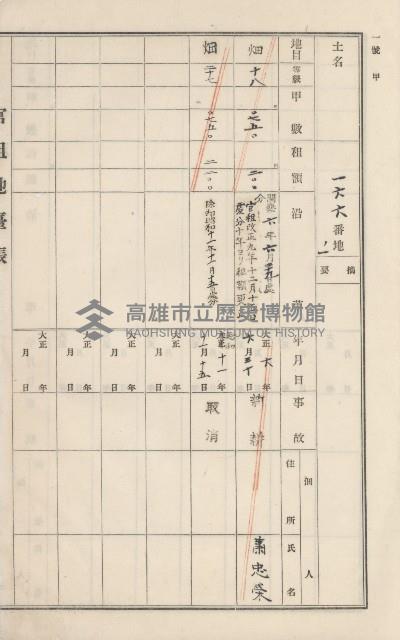 一號甲
土名
一六六番地ノ一
摘要
地目
等級
甲數
租額
沿革
年月日
事故
佃人
住所氏名
畑
十八
〇七五〇
二〇〇
六年六月
官租改正九年十二月十
處分十年ヨリ租額更
大正六年六月三十日
新耕
蕭忠榮
畑
二七
〇七五〇
二一〇〇
昭和十一年十一月十五
十一年十一月十五日
取消
大正年月日
大正年月日
大正年月日
大正年月日
大正年月日
官租地臺帳
高雄市立歷史博物館
KAOHSIUNG MUSEUM OF HISTORY